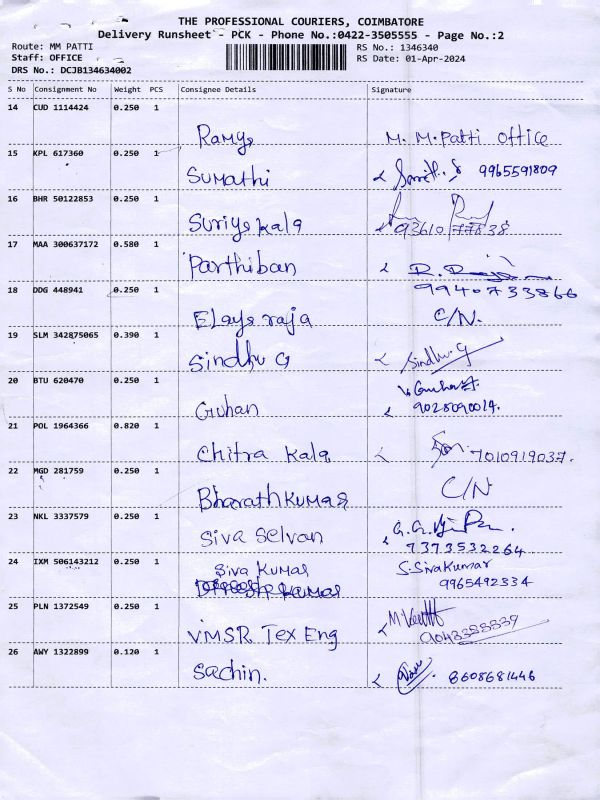 THE PROFESSIONAL COURIERS, COIMBATORE
Delivery Runsheet - PCK - Phone No.:0422-3505555 - Page No.:2
Route: MM PATTI RS No.: 1346340
Staff: OFFICE RS Date: 01-Apr-2024
DRS No.: DCJB134634002
S No Consignment No Weight PCS Consignee Details Signature
14 CUD 1114424 0.250 1
Ramya M. M. Patti Office
15 KPL 617360 0.250 1
Sumathi 9965591809
16 BHR 50122853 0.250 1
Suriya kala 9361077838
17 MAA 300637172 0.580 1
Parthiban
18 DDG 448941 0.250 1 9940733866
Elaya raja C/N.
19 SLM 342875065 0.390 1
Sindhu G Sindhu.G
20 BTU 620470 0.250 1
Guhan 9028090014.
21 POL 1964366 0.820 1
Chitra kala 7010919037.
22 MGD 281759 0.250 1
Bharath Kumar C/N
23 NKL 3337579 0.250 1
Siva Selvan 7373532264
24 IXM 506143212 0.250 1
Siva Kumar S.SivaKumar
9965492334
25 PLN 1372549 0.250 1
VMSR Tex Eng
26 AWY 1322899 0.120 1
Sachin. 8608681446